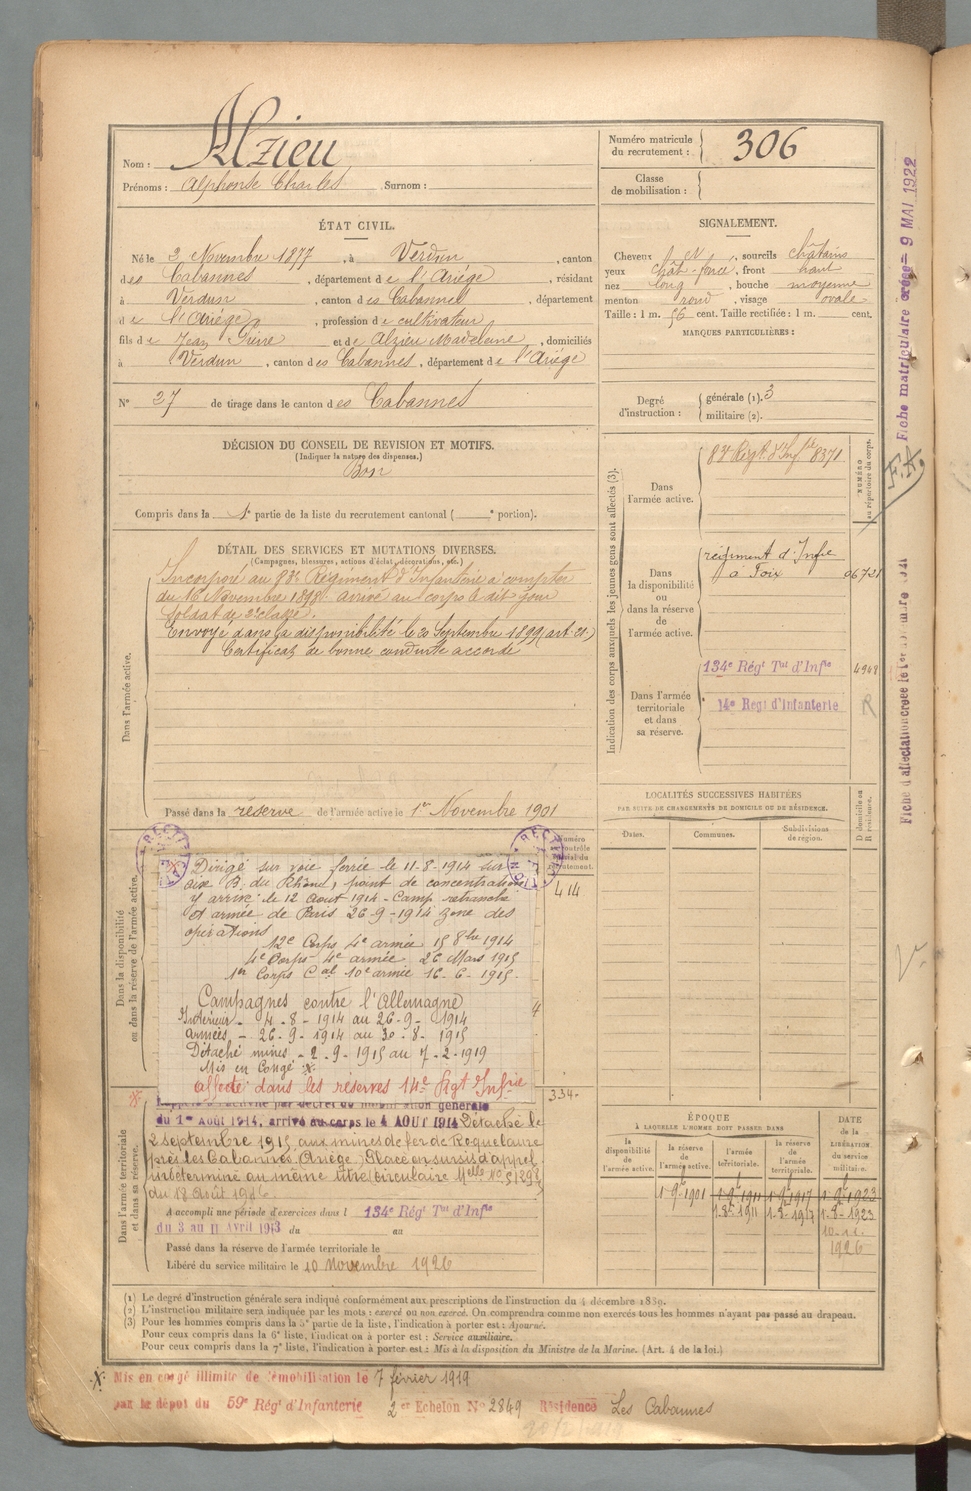 Nom : Alzieu
Prénoms : Alphonse Charles . Surnom :
Numéro matricule du recrutement : 306
Classe de mobilisation :
ÉTAT CIVIL.
Né le 2 Novembre 1877 , à Verdun , canton
des Cabannes , département de l'Ariège , résidant
à Verdun , canton des Cabannes , département
de l'Ariège , profession de cultivateur
fils de Jean Pierre et de Alzieu Madeleine , domiciliés
à Verdun , canton des Cabannes , département de l'Ariège
N° 27 de tirage dans le canton des Cabannes
SIGNALEMENT.
Cheveux , sourcils châtains
yeux chât-foncé , front haut
nez long , bouche moyenne
menton rond , visage ovale
Taille : 1 m. 56 cent. Taille rectifiée : 1 m. cent.
MARQUES PARTICULIÈRES :
Degré d'instruction : générale (1). 3
militaire (2).
DÉCISION DU CONSEIL DE REVISION ET MOTIFS.
(Indiquer la nature des dispenses.)
Bon
Compris dans la 1e partie de la liste du recrutement cantonal ( e portion).
DÉTAIL DES SERVICES ET MUTATIONS DIVERSES.
(Campagnes, blessures, actions d'éclat, décorations, etc.)
Dans l'armée active.
Incorporé au 83e Régiment d'Infanterie à compter
du 16 Novembre 1898. Arrivé au corps le dit jour
Soldat de 2e classe.
Envoyé dans la disponibilité le 20 Septembre 1899 (art. 21.)
Certificat de bonne conduite accordé
Passé dans la réserve de l'armée active le 1er Novembre 1901
Indication des corps auxquels les jeunes gens sont affectés (3).
NUMÉRO au répertoire du corps.
Dans l'armée active.
83e Régt d'Infie 8371
Dans la disponibilité ou dans la réserve de l'armée active.
régiment d'Infie
à Foix 06721
Dans l'armée territoriale et dans sa réserve.
134e Régt Tal d'Infie 4948
14e Regt d'Infanterie R
LOCALITÉS SUCCESSIVES HABITÉES
PAR SUITE DE CHANGEMENTS DE DOMICILE OU DE RÉSIDENCE.
Dates. Communes. Subdivisions de région. D domicile ou R résidence.
Dans la disponibilité ou dans la réserve de l'armée active.
RECTIFICATION
RECTIFICATION
Dirigé sur voie ferrée le 11-8-1914 sur
Aix B. du Rhône, point de concentration
y arrive le 12 Aout 1914 - Camp retranché
et armée de Paris 26-9-1914 zone des
opérations
12e Corps 4e armée 15 8bre 1914
4e Corps - 4e armée 26 Mars 1915
1er Corps Cal 10e armée 16-6-1915-
Campagnes contre l'Allemagne
Intérieur - 4-8-1914 au 26-9-1914
Armées - 26-9-1914 au 30-8-1915
Détaché mines - 2-9-1915 au 7-2-1919
Mis en Congé
affecté dans les réserves 14e Rgt Infie
414
334-
Dans l'armée territoriale et dans sa réserve.
Rappelé à l'activité par décret de mobilisation générale
du 1er Août 1914, arrivé au corps le 4 AOUT 1914 Détaché le
2 septembre 1915 aux mines de fer de Roquelaure
près les Cabannes (Ariège) Placé en sursis d'appel
indéterminé au même titre (circulaire Melle N°
du 18 Août 1916
A accompli une période d'exercices dans l 134e Régt Tal d'Infie
du 3 au 11 Avril 1913 du au
Passé dans la réserve de l'armée territoriale le
Libéré du service militaire le 10 Novembre 1926
ÉPOQUE
À LAQUELLE L'HOMME DOIT PASSER DANS
la disponibilité de l'armée active. la réserve de l'armée active. l'armée territoriale. la réserve de l'armée territoriale.
DATE de la LIBÉRATION du service militaire.
1-9bre 1901 1-9bre 1911 1-9bre 1917 1-9bre 1923
1-8-1911 1-8-1917 1-8-1923
10-11-
1926
(1) Le degré d'instruction générale sera indiqué conformément aux prescriptions de l'instruction du 4 décembre 1889.
(2) L'instruction militaire sera indiquée par les mots : exercé ou non exercé. On comprendra comme non exercés tous les hommes n'ayant pas passé au drapeau.
(3) Pour les hommes compris dans la 5e partie de la liste, l'indication à porter est : Ajourné.
Pour ceux compris dans la 6e liste, l'indication à porter est : Service auxiliaire.
Pour ceux compris dans la 7e liste, l'indication à porter est : Mis à la disposition du Ministre de la Marine. (Art. 4 de la loi.)
Mis en congé illimité de démobilisation le 7 février 1919
par le dépôt du 59e Régt d'Infanterie 2e Echelon N° 2849 Résidence Les Cabannes
Fiche matriculaire créée - 9 MAI 1922
F.A.
Fiche d'affectation créée le 1er